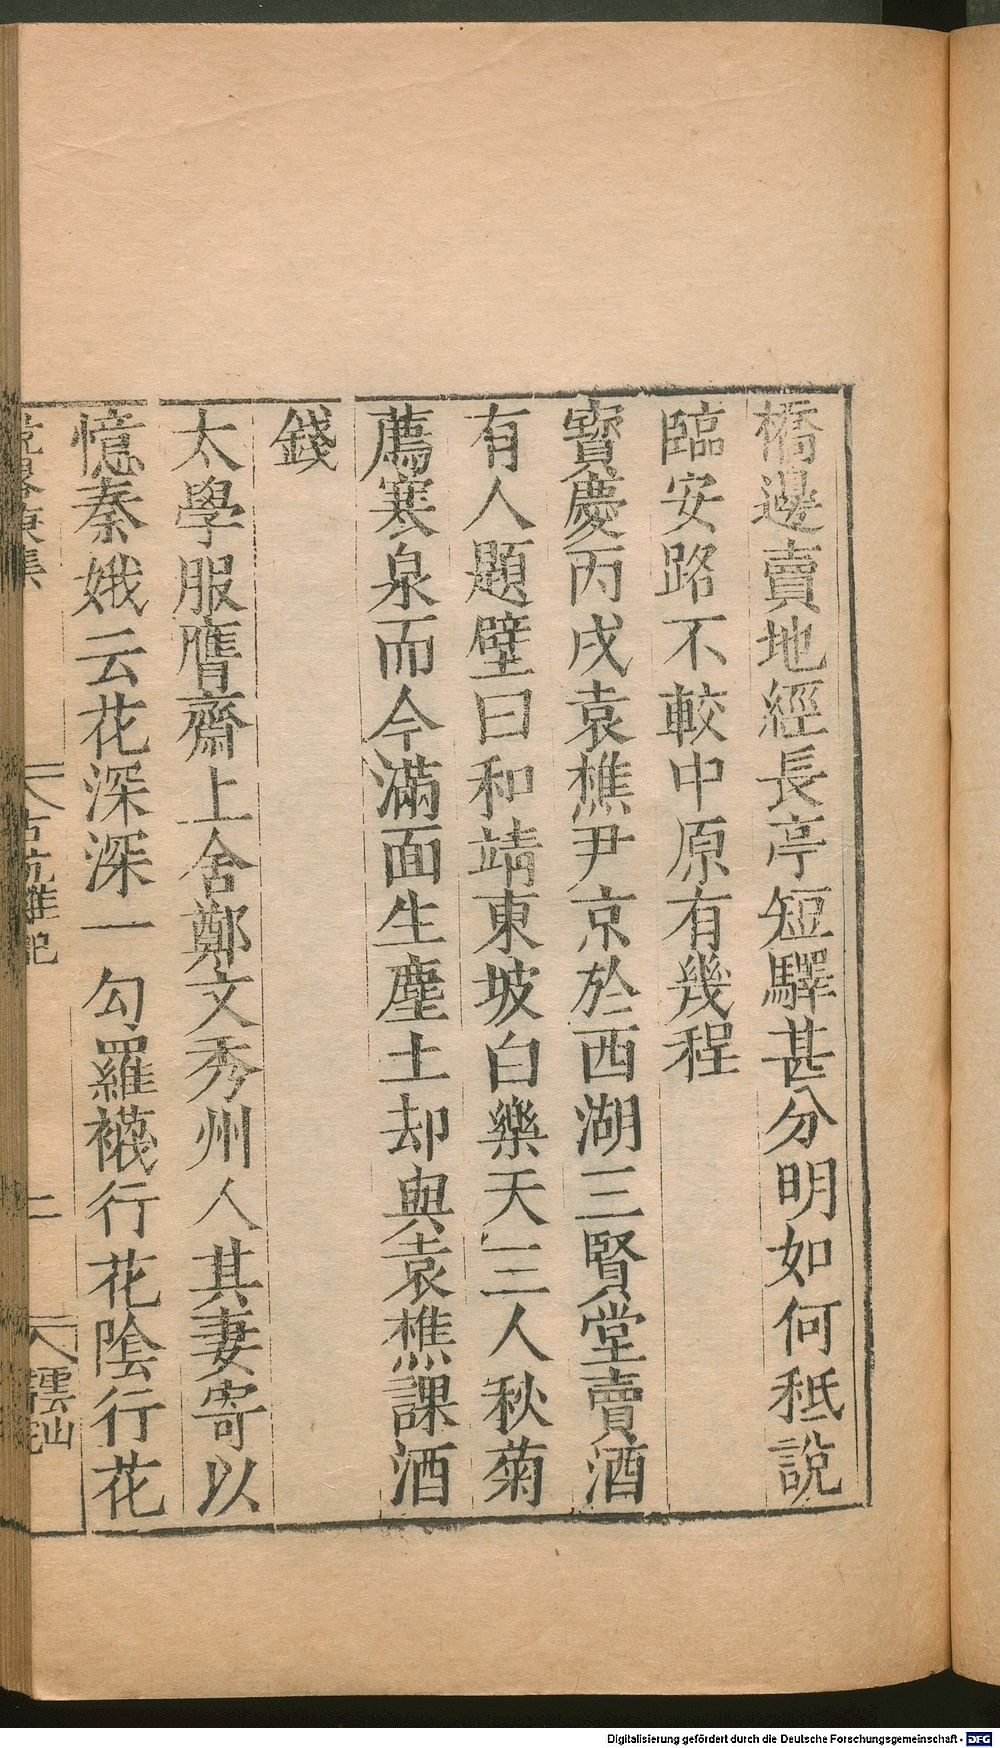 橋邊賣地經長亭短驛甚分明如何秪說
臨安路不較中原有幾程
寳慶丙戌袁樵尹京於西湖三賢堂賣酒
有人題壁曰和靖東坡白樂天三人秋菊
薦寒泉而今滿面生塵土却與袁樵課酒
錢
太學服膺齋上舍鄭文秀州人其妻寄以
憶秦娥云花深深一勾羅襪行花陰行花
古杭雜記
二
Digitalisierung gefördert durch die Deutsche Forschungsgemeinschaft - DFG